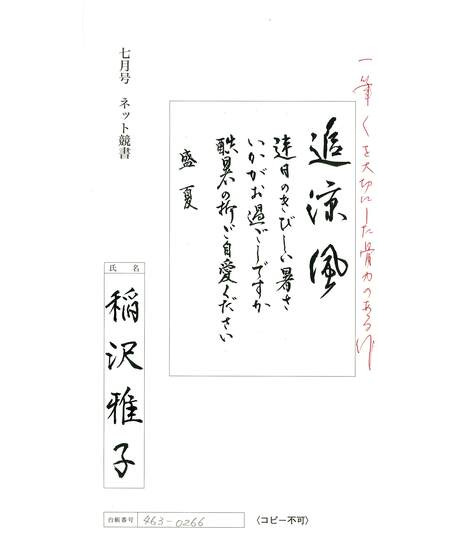 一筆くを大切にした骨力のある作
追涼風
連日のきびしい暑さ
いかがお過ごしですか
酷暑の折ご自愛ください
盛夏
七月号 ネット競書
氏名
稲沢雅子
台帳番号 463-0266
(コピー不可)